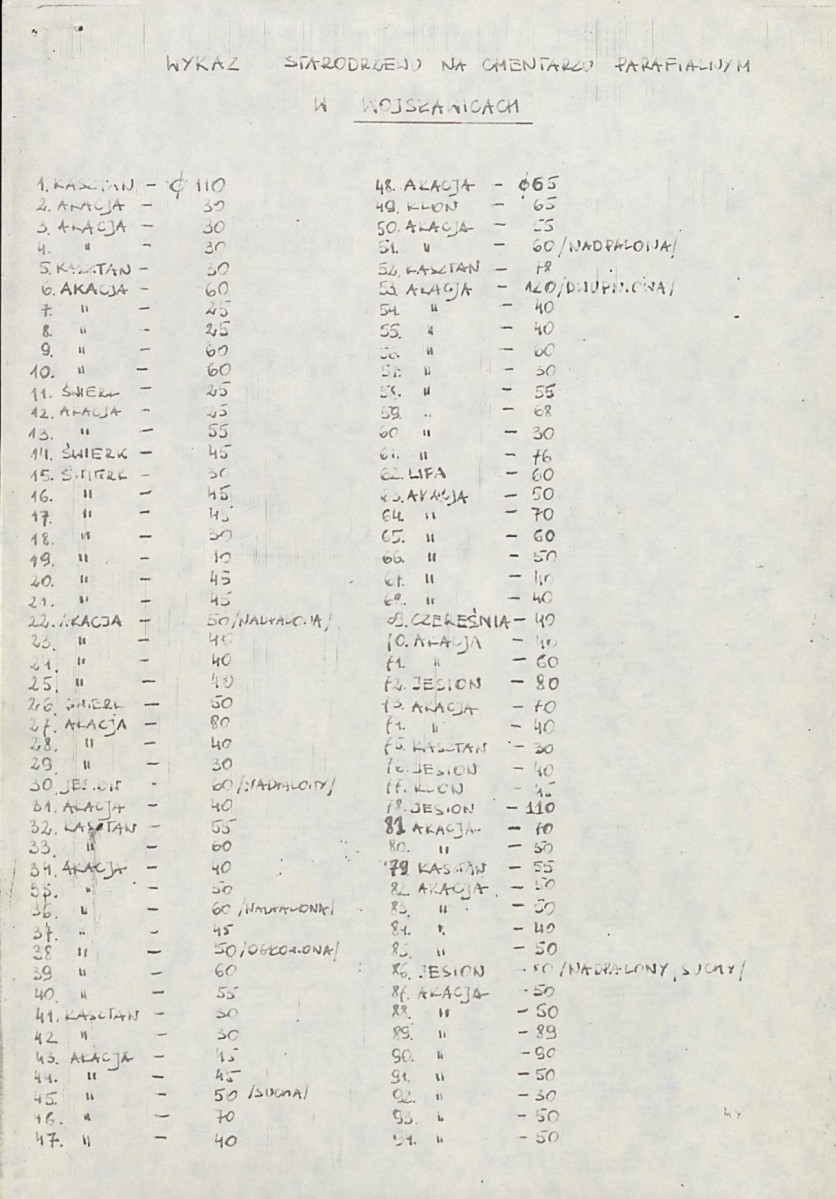 WYKAZ STARODRZEWU NA CMENTARZU PARAFIALNYM
W WOJSŁAWICACH
1. KASZTAN - ϕ 110
2. AKACJA - 30
3. AKACJA - 30
4. " - 30
5. KASZTAN - 30
6. AKACJA - 60
7. " - 25
8. " - 25
9. " - 60
10. " - 60
11. ŚWIERK - 25
12. AKACJA - 25
13. " - 55
14. ŚWIERK - 45
15. ŚWIERK - 30
16. " - 45
17. " - 45
18. " - 30
19. " - 10
20. " - 45
21. " - 45
22. AKACJA - 50 /NADPALONA/
23. " - 40
24. " - 40
25. " - 40
26. ŚWIERK - 50
27. AKACJA - 80
28. " - 40
29. " - 30
30. JESION - 60 /NADPALONY/
31. AKACJA - 40
32. KASZTAN - 55
33. " - 60
34. AKACJA - 40
35. " - 50
36. " - 60 /NADPALONA/
37. " - 45
38 " - 50 /OGŁOWIONA/
39 " - 60
40. " - 55
41. KASZTAN - 30
42 " - 30
43. AKACJA - 45
44. " - 45
45. " - 50 /SUCHA/
46. " - 70
47. " - 40
48. AKACJA - ϕ65
49. KLON - 65
50. AKACJA - 55
51. " - 60 /NADPALONA/
52. KASZTAN - 78
53. AKACJA - 120 /DWUPNIOWA/
54. " - 40
55. " - 40
56. " - 60
57. " - 30
58. " - 55
59. " - 68
60 " - 30
61. " - 76
62. LIPA - 60
63. AKACJA - 50
64. " - 70
65. " - 60
66. " - 50
67. " - 40
68. " - 40
69. CZEREŚNIA - 40
70. AKACJA - 40
71. " - 60
72. JESION - 80
73. AKACJA - 70
74. " - 40
75. KASZTAN - 30
76. JESION - 40
77. KLON - 45
78. JESION - 110
81 AKACJA - 70
80. " - 50
79 KASZTAN - 55
82. AKACJA - 50
83. " - 50
84. " - 40
85. " - 50
86. JESION - 80 /NADPALONY, SUCHY/
87. AKACJA - 50
88. " - 50
89. " - 89
90. " - 90
91. " - 50
92. " - 30
93. " - 50
94. " - 50